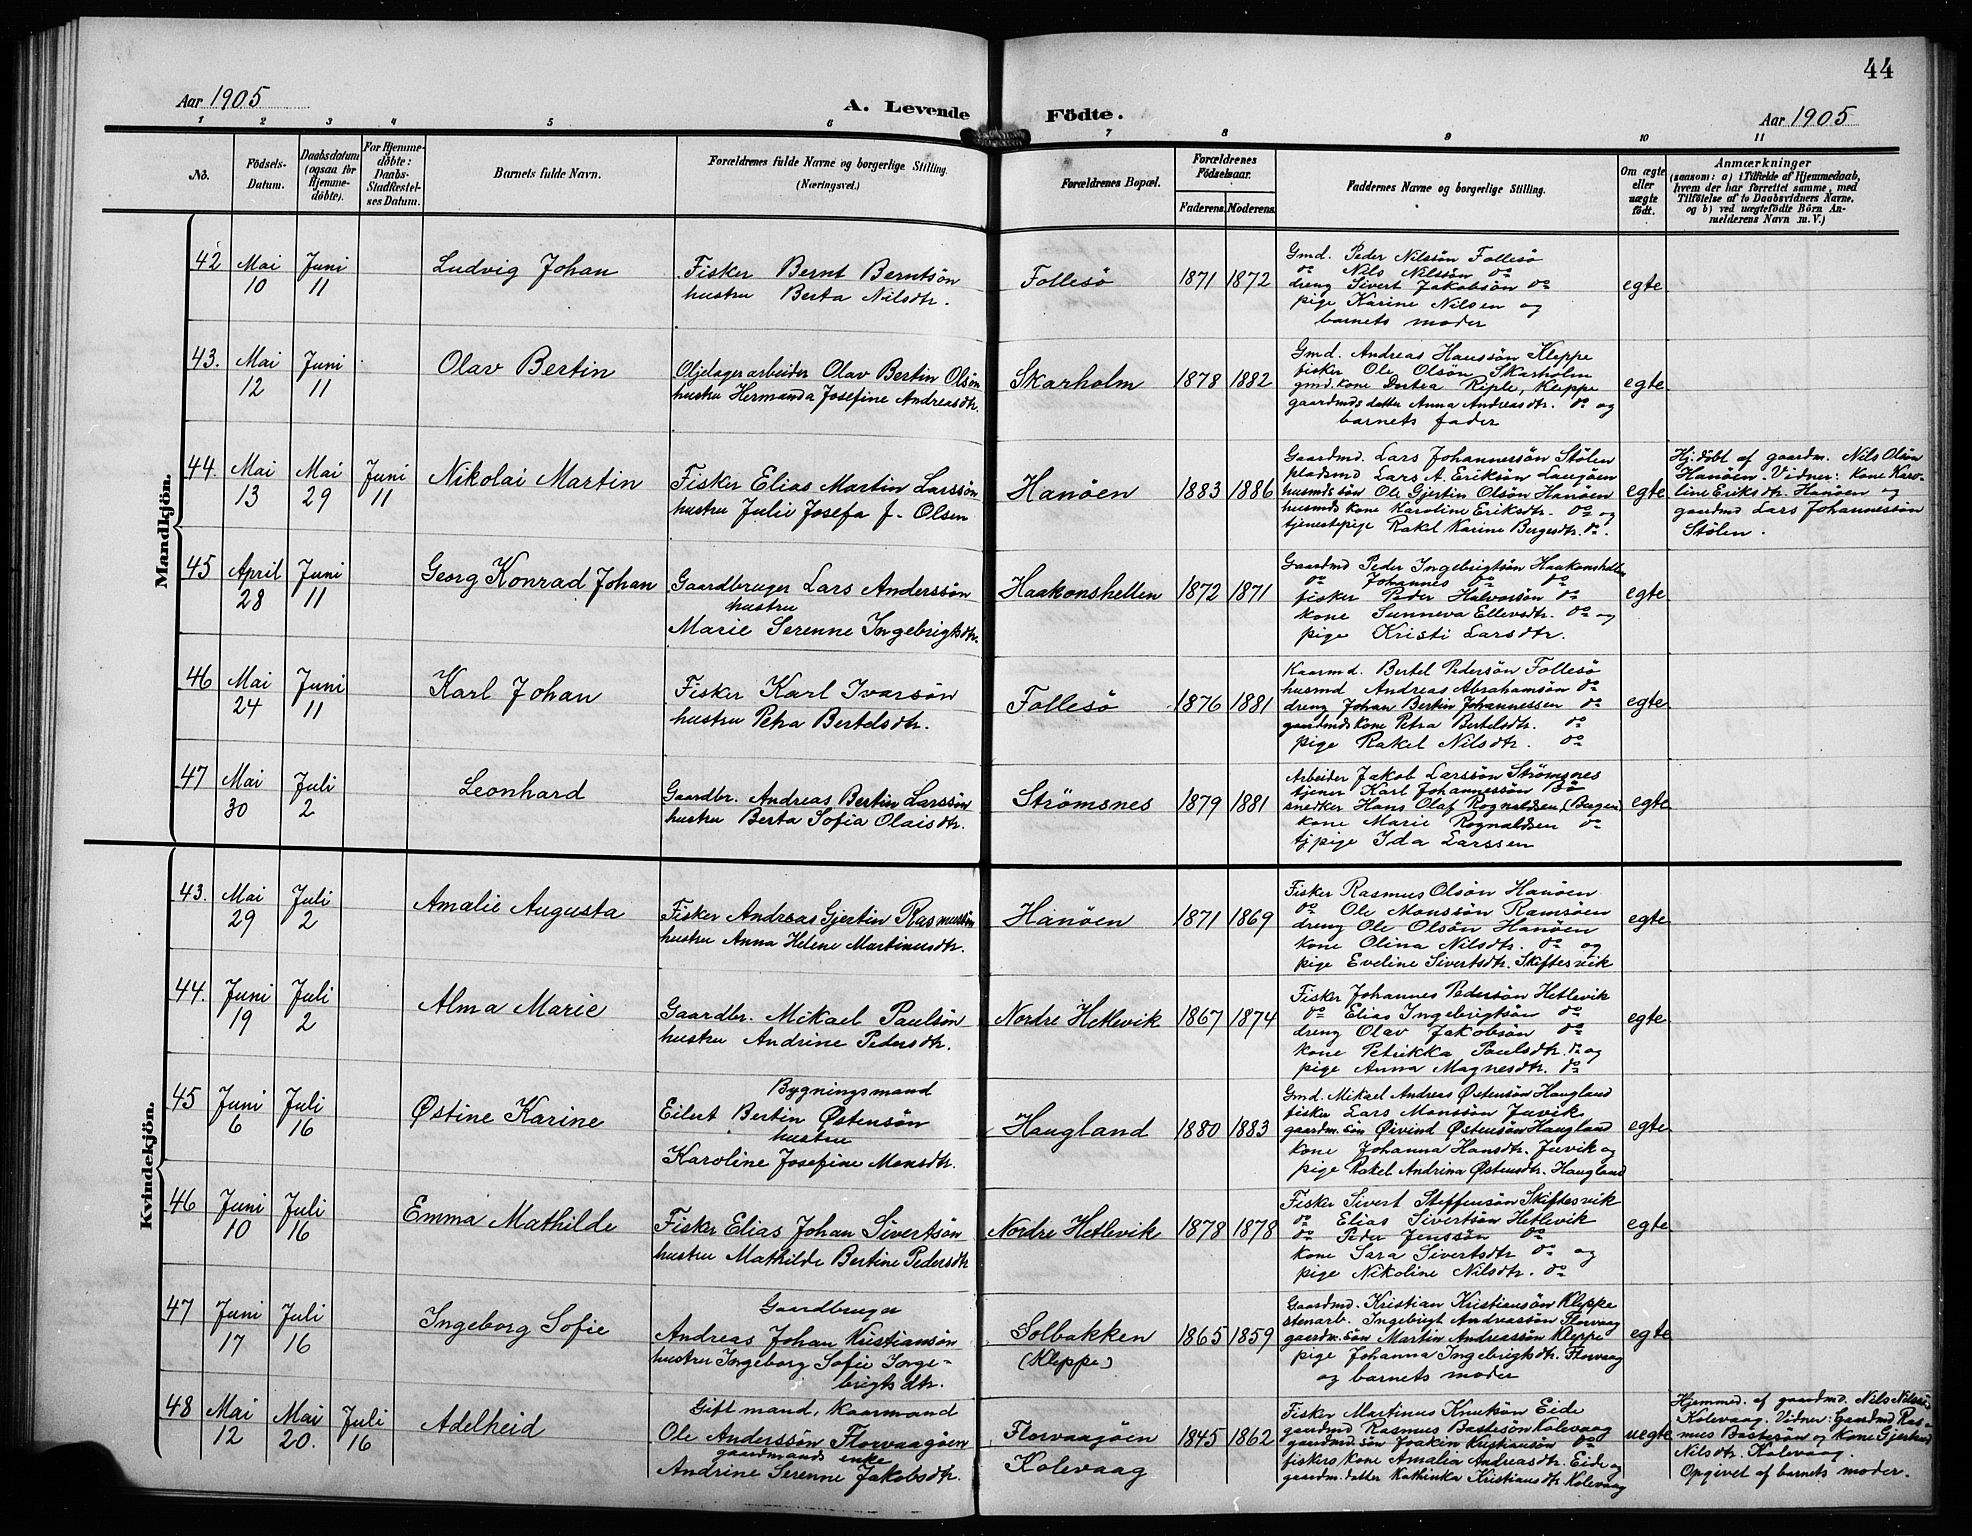 44
Aar 1905
A. Levende Födte.
Aar 1905
1 2 3 4 5 6 7 8 9 10 11
No.
Födsels-Datum.
Daabsdatum (ogsaa for Hjemmedöbte).
For Hjemmedöbte: Daabs-Stadfæstelses Datum.
Barnets fulde Navn.
Forældrenes fulde Navne og borgerlige Stilling.
(Næringsvei.)
Forældrenes Bopæl.
Forældrenes Födselsaar.
Faderens. Moderens.
Faddernes Navne og borgerlige Stilling.
Om ægte eller uægte födt.
Anmærkninger
(saasom: a) i Tilfælde af Hjemmedaab,
hvem der har forrettet samme, med
Tilföielse af to Daabsvidners Navne,
og b) ved uægtefödte Börn An-
melderens Navn m. V.)
Mandkjön.
42 Mai 10 Juni 11 Ludvig Johan
Fisker Bernt Berntsön
hustru Berta Nilsdtr.
Follesö 1871 1872
Gmd. Peder Nilssön Follesö
do Nils Nilssön do
dreng Sivert Jakobsön do
pige Karine Nilsen og
barnets moder
egte
43. Mai 12 Juni 11 Olav Bertin
Oljelagerarbeider Olav Bertin Olsön
hustru Hermanda Josefine Andreasdtr.
Skarholm 1878 1882
Gmd. Andreas Hanssön Kleppe
fisker Ole Olsön Skarholm
gmd. kone Dortea Riple, Kleppe
gaardmds datter Anna Andreasdtr. do og
barnets fader
egte
44. Mai 13 Mai 29 Juni 11 Nikolai Martin
Fisker Elias Martin Larssön
hustru Julie Josefa f. Olsen
Hanöen 1883 1886
Gaardmd. Lars Johannessön Stölen
pladsmd Lars A. Eriksön Laujöen
husmds sön Ole Gjertin Olsön Hanöen
husmds kone Karoline Eriksdtr. do og
tjenestepige Rakel Karine Bergesdtr. do.
egte
Hj. döbt af gaardm. Nils Olsön
Hanöen. Vidner: kone Karo-
line Eriksdtr. Hanöen og
gaardmd Lars Johannessön
Stölen.
45 April 28 Juni 11 Georg Konrad Johan
Gaardbruger Lars Anderssön
hustru
Marie Serenne Ingebrigtsdtr.
Haakonshellen 1872 1871
Gaardmd Peder Ingebrigtsön Haakonshellen
do Johannes do do
fisker Peder Halvorsön do
kone Sunneva Ellevsdtr. do og
pige Kristi Larsdtr.
egte
46 Mai 24 Juni 11 Karl Johan
Fisker Karl Ivarsön
hustru Petra Bertelsdtr.
Follesö 1876 1881
Kaarmd. Bertel Pedersön Follesö
husmd Andreas Abrahamsön do
dreng Johan Bertin Johannessen do
gaardmds kone Petra Bertelsdtr. do
pige Rakel Nilsdtr. do
egte
47 Mai 30 Juli 2 Leonhard
Gaardbr. Andreas Bertin Larssön
hustru Berta Sofia Olaisdtr.
Strömsnes 1879 1881
Arbeider Jakob Larssön Strömsnes
tjener Karl Johannessön Bö
snedker Hans Olaf Rognaldsen (Bergen)
kone Marie Rognaldsen do
tj pige Ida Larssen
egte
Kvindekjön.
43. Mai 29 Juli 2 Amalie Augusta
Fisker Andreas Gjertin Rasmussön
hustru Anna Helene Martinusdtr.
Hanöen 1871 1869
Fisker Rasmus Olsön Hanöen
do Ole Monssön Ramsöen
dreng Ole Olsön Hanöen
kone Olina Nilsdtr. do og
pige Eveline Sivertsdtr. Skiftesvik
egte
44. Juni 19 Juli 2 Alma Marie
Gaardbr. Mikael Paulsön
hustru Andrine Pedersdtr.
Nordre Hetlevik 1867 1874
Fisker Johannes Pedersön Hetlevik
do Elias Ingebrigtsön do
dreng Olav Jakobsön do
kone Petrikka Paulsdtr. do og
pige Anna Magnesdtr. do
egte
45 Juni 6 Juli 16 Østine Karine
Bygningsmand
Eilert Bertin Østensön
hustru
Karoline Josefine Monsdtr.
Haugland 1880 1883
Gmd. Mikael Andreas Østensön Haugland
fisker Lars Monssön Juvik
gaardm. sön Øivind Østensön Haugland
kone Johanna Hansdtr. Juvik og
pige Rakel Andrina Østensdtr. Haugland
egte
46 Juni 10 Juli 16 Emma Mathilde
Fisker Elias Johan Sivertsön
hustru Mathilde Bertine Pedersdtr
Nordre Hetlevik 1878 1878
Fisker Sivert Steffensön Skiftesvik
do Elias Sivertsön Hetlevik
do Peder Jenssön do
kone Sara Sivertsdtr do og
pige Nikoline Nilsdtr. do
egte
47 Juni 17 Juli 16 Ingeborg Sofie
Gaardbruger
Andreas Johan Kristiansön
hustru Ingeborg Sofie Inge-
brigtsdtr.
Solbakken
(Kleppe)
1865 1859
Gaardmd. Kristian Kristiansön Kleppe
stenarb. Ingebrigt Andreassön Florvaag
gaardm. sön Martin Andreassön Kleppe
pige Johanna Ingebrigtsdtr. Florvaag
og barnets moder
egte
48 Mai 12 Mai 20. Juli 16 Adelheid
Gift mand, Kaarmand
Ole Anderssön Florvaagöen
gaardmands enke
Andrine Serenne Jakobsdtr.
Florvaagöen
Kolevaag
1845 1862
Fisker Martinus Knutsön Eide
gaardmd Rasmus Bastesön Kolevaag
gaardmd. sön Joakim Kristiansön do
fiskers kone Amalia Andreasdtr. Eide og
gaardm. datter Kathinka Kristiansdtr Kolevaag
uegte
Hjemmed. af gaardmd. Nils Nilssön
Kolevaag. Vidner: Gaardmd Ras-
mus Bastesön og kone Gjertrud
Nilsdtr. Kolevaag.
Opgivet af barnets moder.